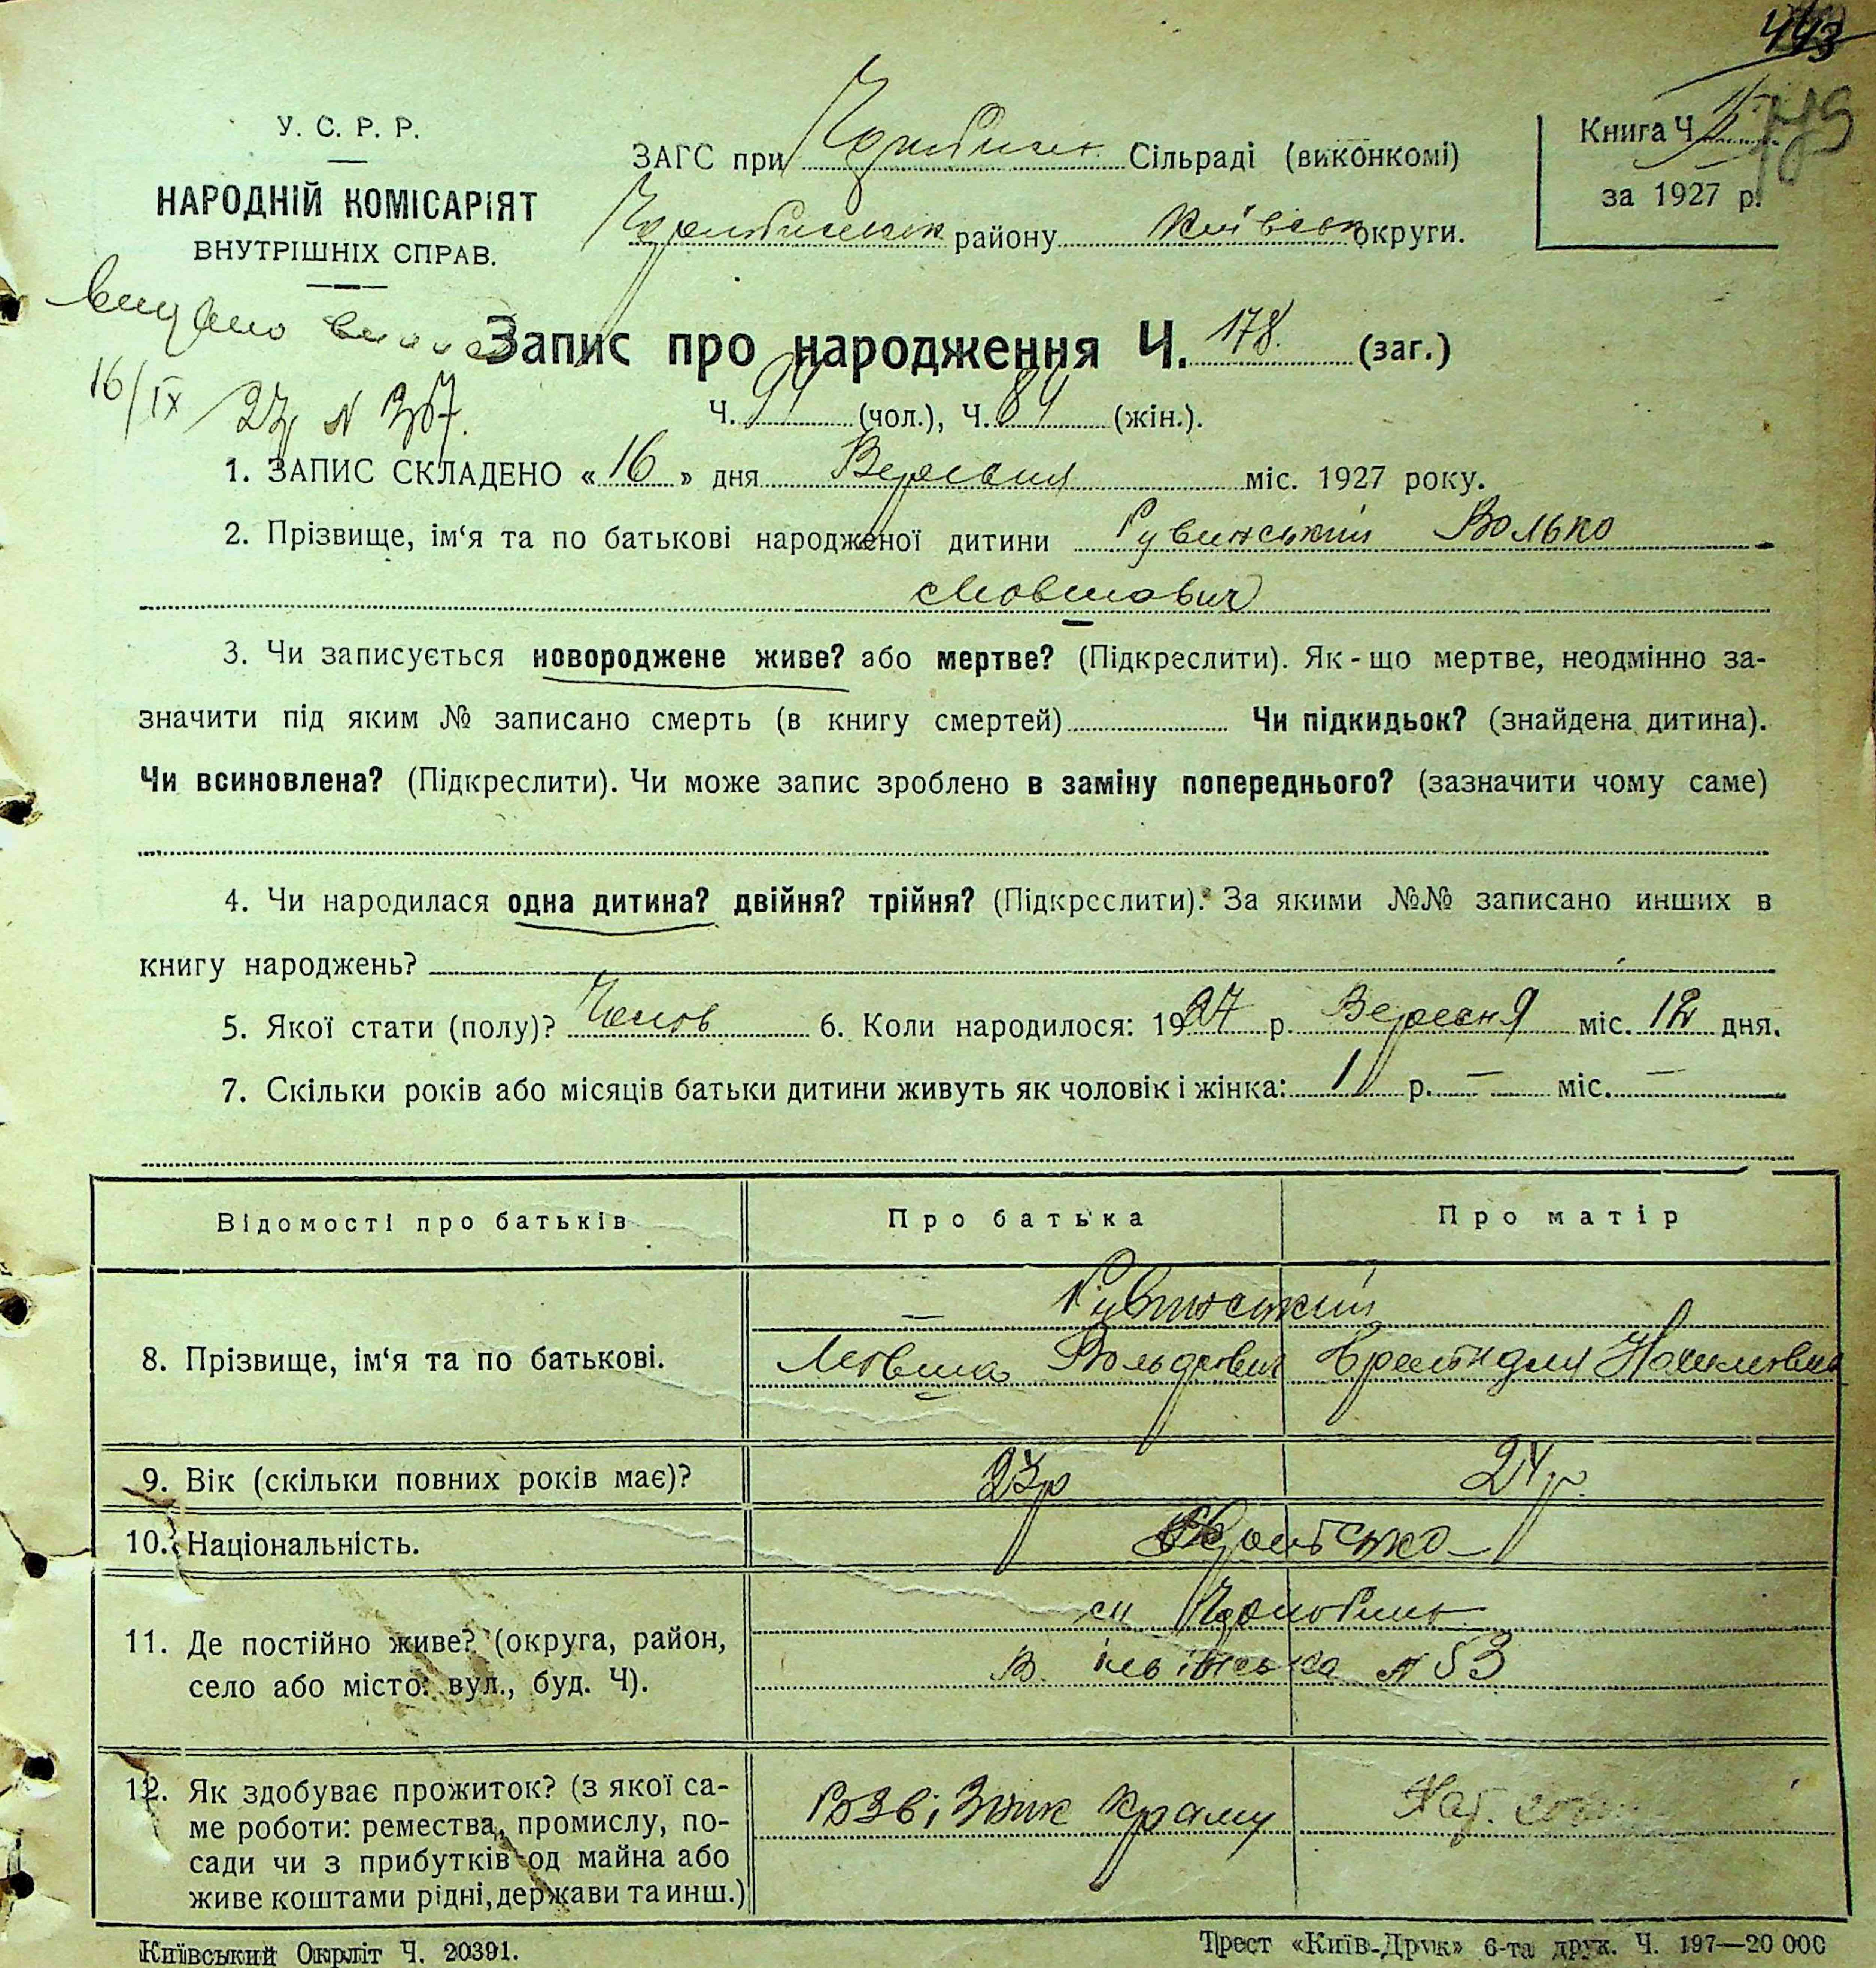 443
У. С. Р. Р.
НАРОДНІЙ КОМІСАРІЯТ
ВНУТРІШНІХ СПРАВ.
ЗАГС при Чорнобильс Сільраді (виконкомі)
Чорнобильськ району Київськ округи.
Книга Ч
за 1927 р.
видано
16/IX 27 N 367.
Запис про народження Ч. 178. (заг.)
Ч. 94 (чол.), Ч. 84 (жін.).
1. ЗАПИС СКЛАДЕНО « 16 » дня Вересня міс. 1927 року.
2. Прізвище, ім‘я та по батькові народженої дитини Рувинський Волько
Мовшович
3. Чи записується новороджене живе? або мертве? (Підкреслити). Як-що мертве, неодмінно за-
значити під яким № записано смерть (в книгу смертей) Чи підкидьок? (знайдена дитина).
Чи всиновлена? (Підкреслити). Чи може запис зроблено в заміну попереднього? (зазначити чому саме)
4. Чи народилася одна дитина? двійня? трійня? (Підкреслити). За якими №№ записано инших в
книгу народжень?
5. Якої стати (полу)? Чолов 6. Коли народилося: 1927 р. Вересня міс. 12 дня.
7. Скільки років або місяців батьки дитини живуть як чоловік і жінка: 1 р. — міс. —
Відомості про батьків Про батька Про матір
— Рувинський
8. Прізвище, ім‘я та по батькові. Мовша Вольфович
9. Вік (скільки повних років має)? 23р 24р.
10. Національність.
11. Де постійно живе? (округа, район,
село або місто: вул., буд. Ч).
м Чорнобиль
N 53
12. Як здобуває прожиток? (з якої са-
ме роботи: ремества, промислу, по-
сади чи з прибутків од майна або
живе коштами рідні, держави та инш.)
Розвізник краму
Київський Окрліт Ч. 20391.
Трест «Київ-Друк» 6-та друк. Ч. 197—20 000